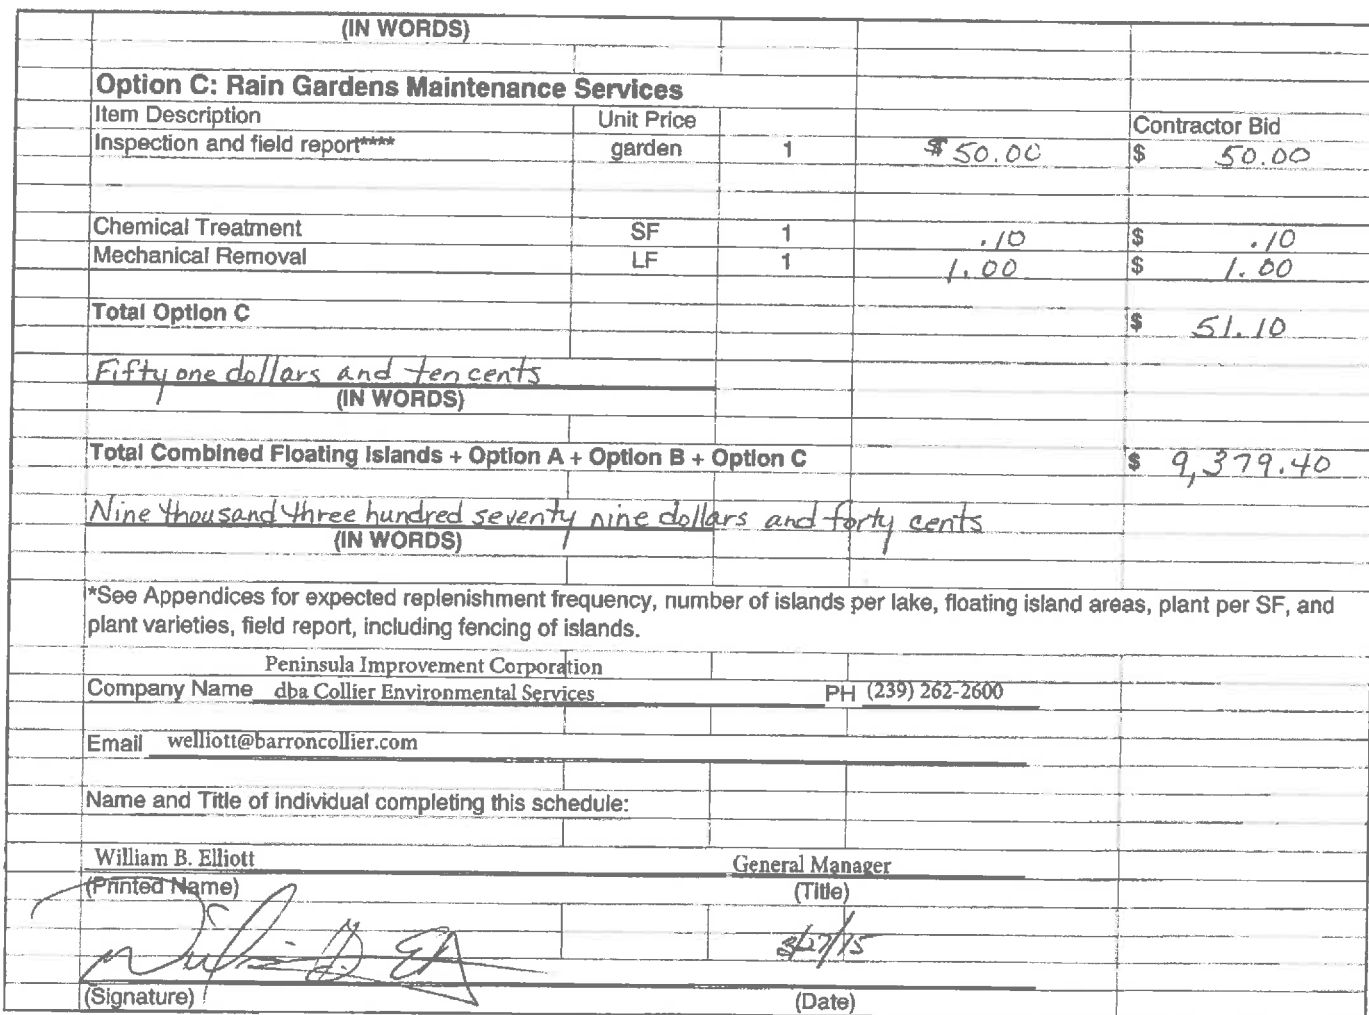 (IN WORDS)
Option C: Rain Gardens Maintenance Services
Item Description Unit Price Contractor Bid
Inspection and field report**** garden 1 $50.00 $ 50.00
Chemical Treatment SF 1 .10 $ .10
Mechanical Removal LF 1 1.00 $ 1.00
Total Option C $ 51.10
Fifty one dollars and ten cents
(IN WORDS)
Total Combined Floating Islands + Option A + Option B + Option C $ 9,379.40
Nine thousand three hundred seventy nine dollars and forty cents
(IN WORDS)
*See Appendices for expected replenishment frequency, number of islands per lake, floating island areas, plant per SF, and
plant varieties, field report, including fencing of islands.
Peninsula Improvement Corporation
Company Name dba Collier Environmental Services PH (239) 262-2600
Email welliott@barroncollier.com
Name and Title of individual completing this schedule:
William B. Elliott General Manager
(Printed Name) (Title)
3/27/15
(Signature) (Date)